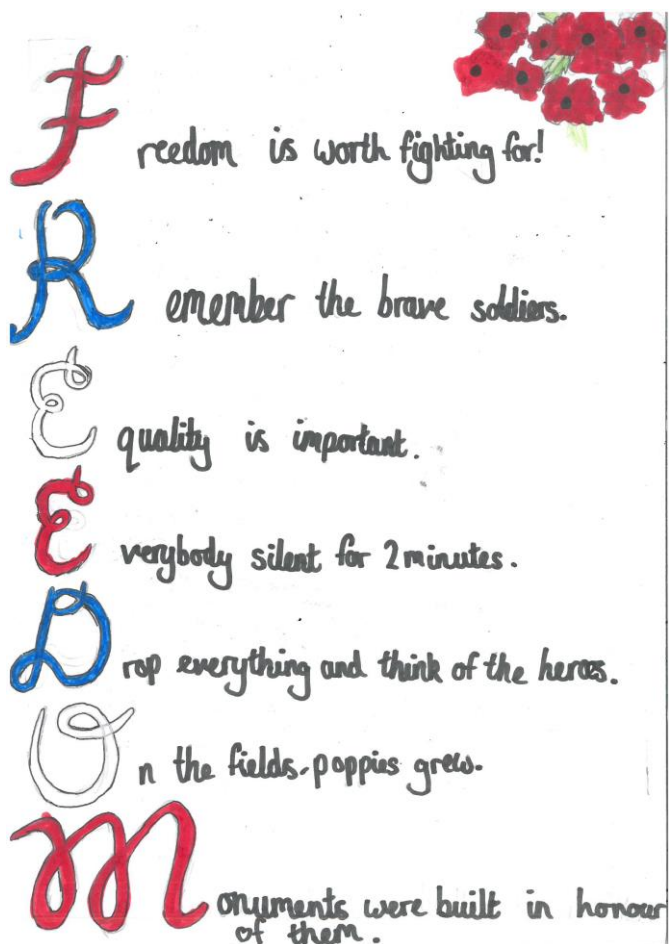 Freedom is worth fighting for!
Remember the brave soldiers.
Equality is important.
Everybody silent for 2 minutes.
Drop everything and think of the heroes.
On the fields, poppies grew.
Monuments were built in honour
of them.